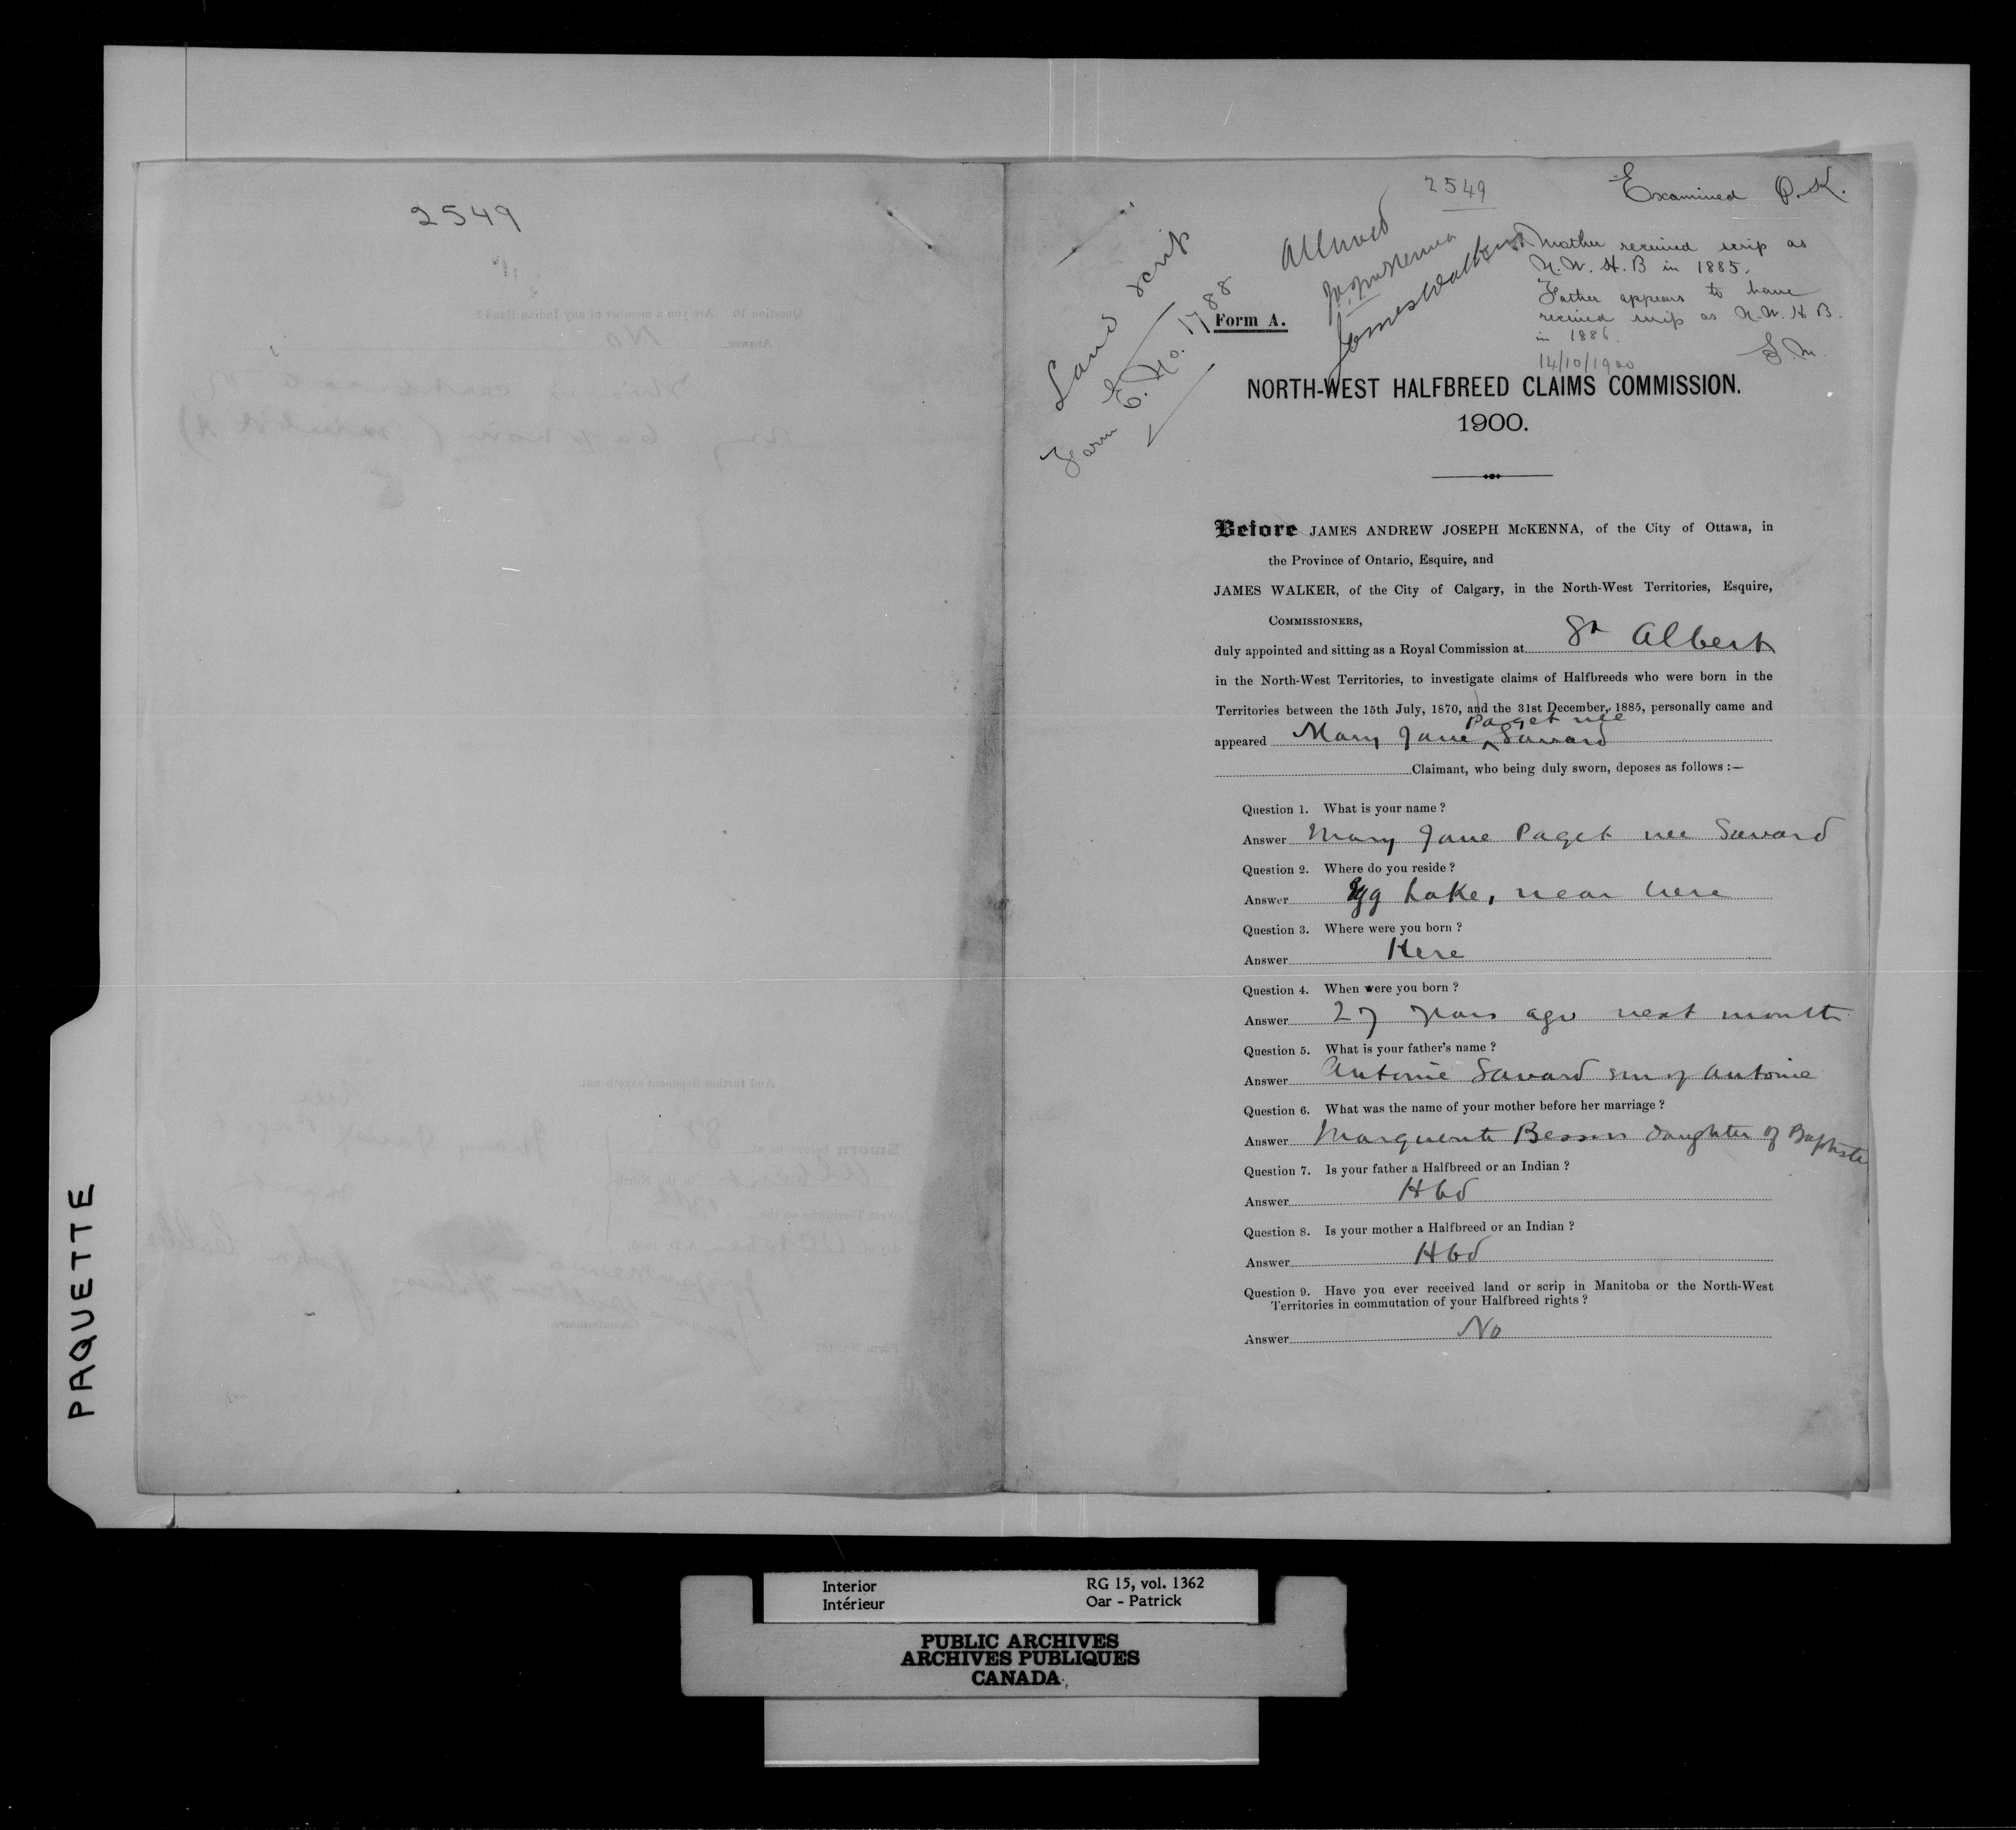 PAQUETTE
2549
2549
Examined P.K.
Land scrip
Form E. No. 1788
Allowed
J.A.J. McKenna
James Walker
Mother received scrip as
N.W.H.B in 1885.
Father appears to have
received scrip as N.W.H B.
in 1886.
14/10/1900
Form A.
NORTH-WEST HALFBREED CLAIMS COMMISSION.
1900.
Before JAMES ANDREW JOSEPH McKENNA, of the City of Ottawa, in
the Province of Ontario, Esquire, and
JAMES WALKER, of the City of Calgary, in the North-West Territories, Esquire,
COMMISSIONERS,
duly appointed and sitting as a Royal Commission at St Albert
in the North-West Territories, to investigate claims of Halfbreeds who were born in the
Territories between the 15th July, 1870, and the 31st December, 1885, personally came and
appeared Mary Jane Paget nee Savard
Claimant, who being duly sworn, deposes as follows :—
Question 1. What is your name ?
Answer Mary Jane Paget nee Savard
Question 2. Where do you reside ?
Answer Egg Lake, near here
Question 3. Where were you born ?
Answer Here
Question 4. When were you born ?
Answer 27 years ago next month
Question 5. What is your father's name ?
Answer Antoine Savard son of Antoine
Question 6. What was the name of your mother before her marriage ?
Answer Marguerite Besson daughter of Baptiste
Question 7. Is your father a Halfbreed or an Indian ?
Answer Hbd
Question 8. Is your mother a Halfbreed or an Indian ?
Answer Hbd
Question 9. Have you ever received land or scrip in Manitoba or the North-West
Territories in commutation of your Halfbreed rights ?
Answer No
Interior RG 15, vol. 1362
Intérieur Oar - Patrick
PUBLIC ARCHIVES
ARCHIVES PUBLIQUES
CANADA